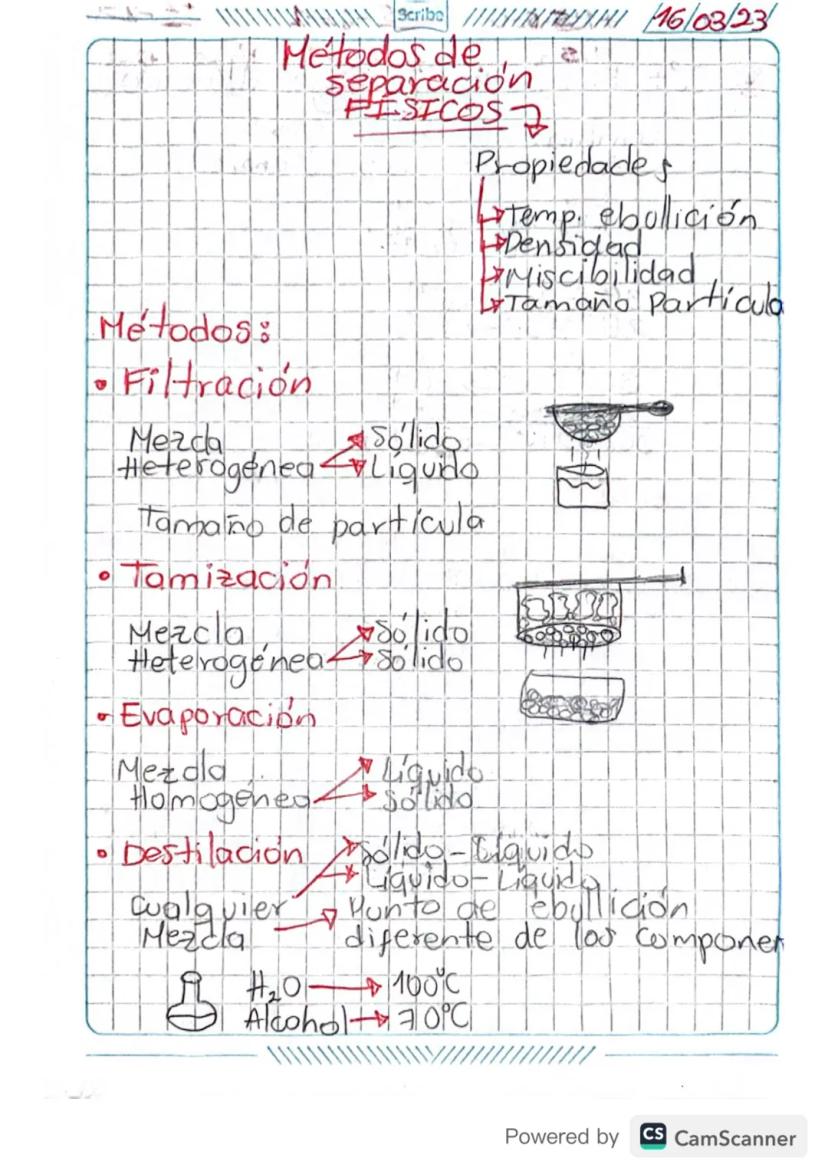 Scribe
16/03/23
Métodos de
separación
FISICOS
Propiedades
Temp. ebullición
Densidad
Miscibilidad
Tamaño Partícula
Métodos:
• Filtración
Mezcla
Heterogénea
Sólido
Líquido
Tamaño de partícula
• Tamización
Mezcla
Heterogénea
Sólido
Sólido
• Evaporación
Mezcla
Homogénea
Líquido
Sólido
• Destilación
Sólido-Líquido
Líquido-Líquido
Cualquier
Mezcla
Punto de ebullición
diferente de los componen
H₂O → 100°C
Alcohol → 70°C
Powered by CS CamScanner